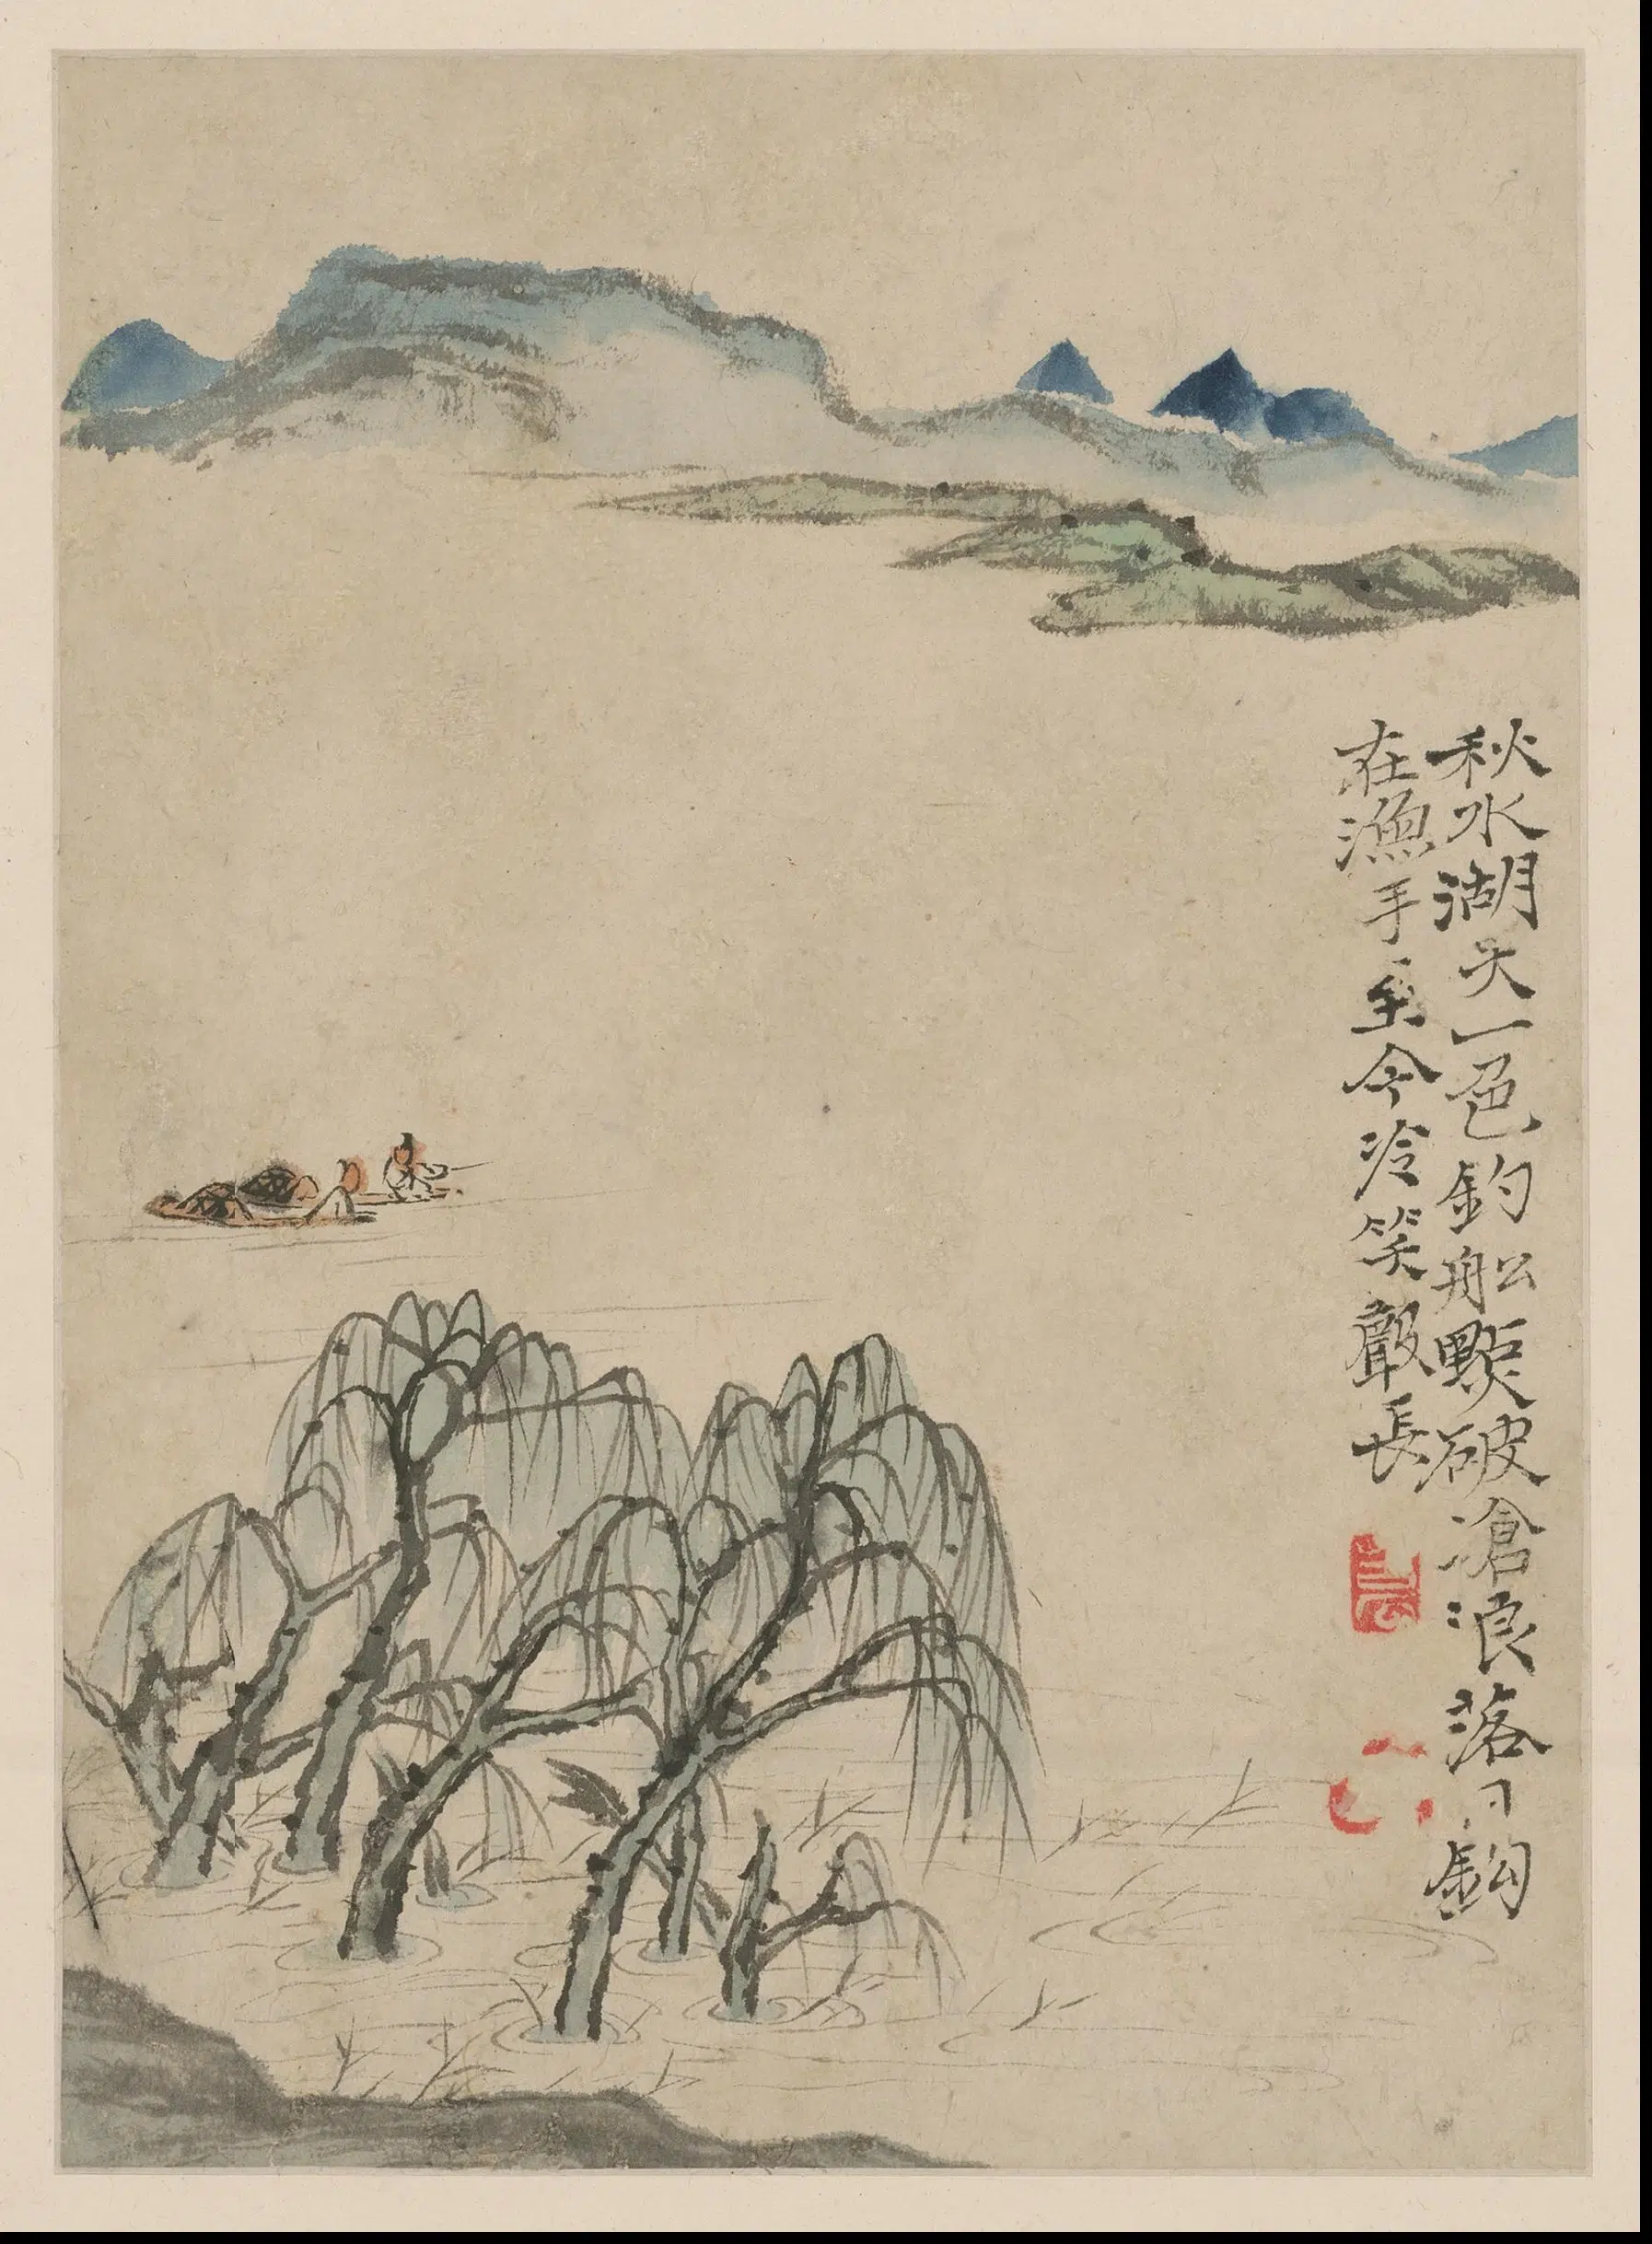 秋水湖天一色釣舩點破滄浪落日鈎
在漁手至今冷笑聲長